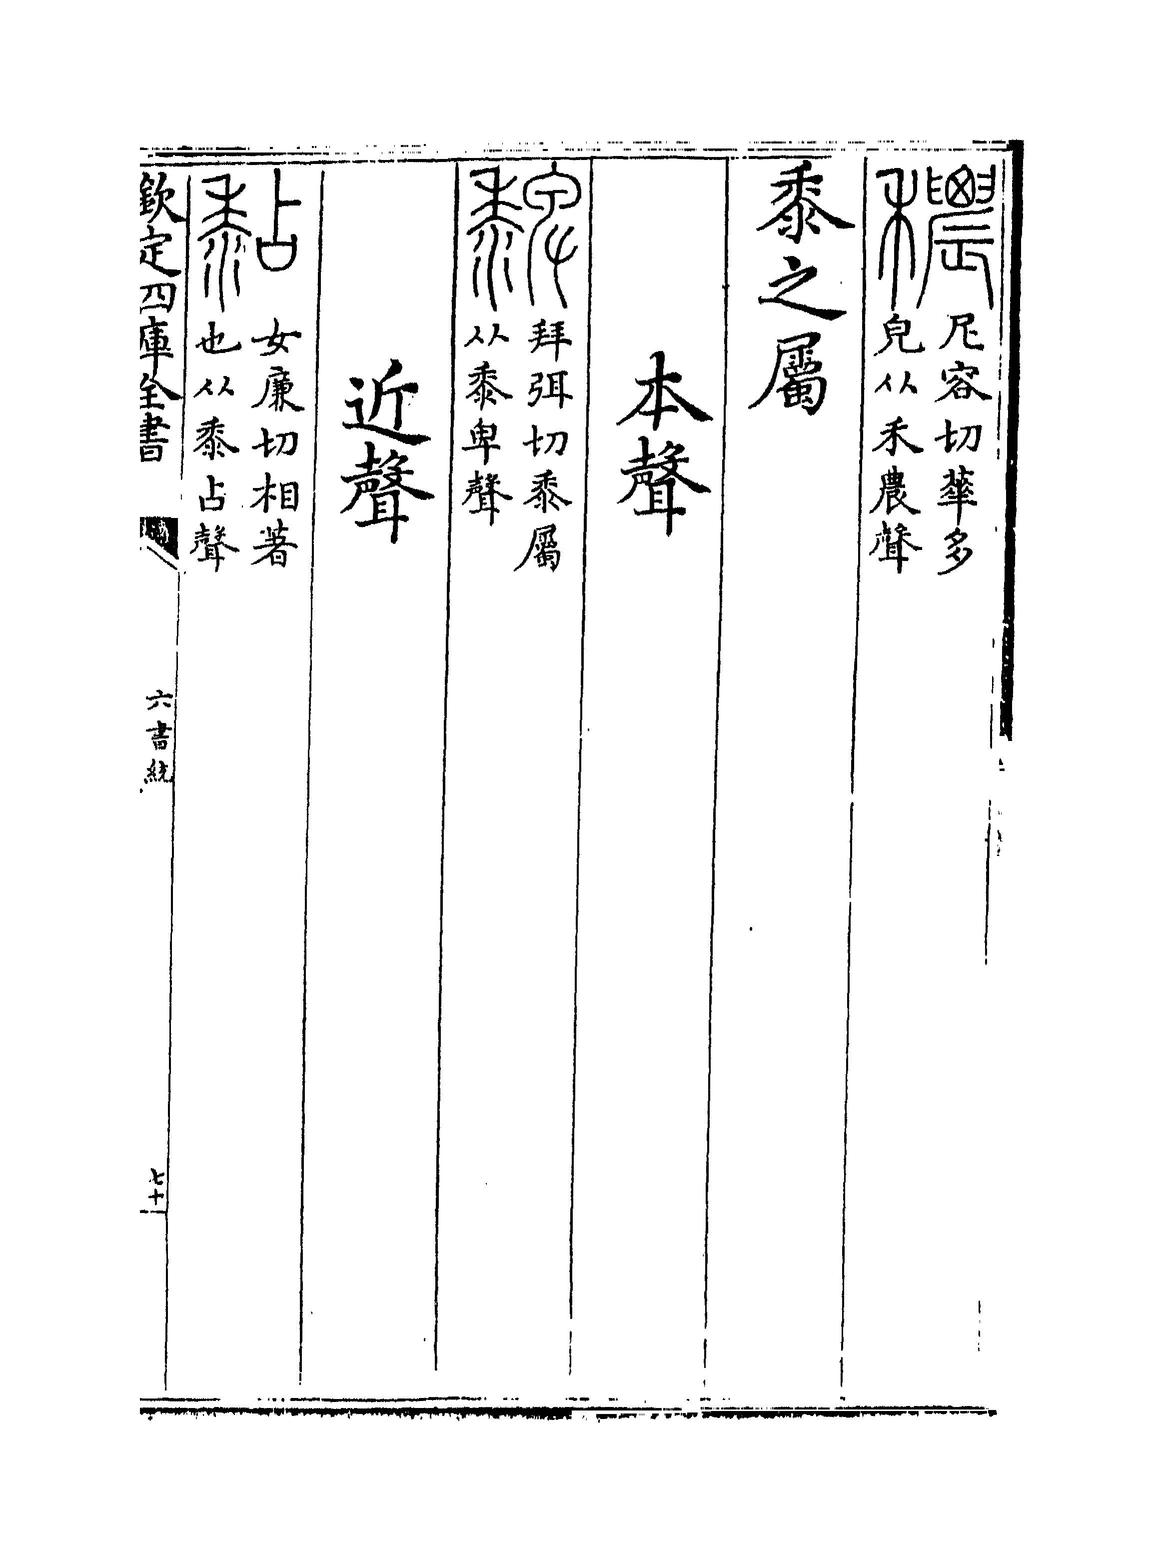 穠
尼容切華多
皃从禾農聲
黍之屬
本聲
𪏭
拜弭切黍屬
从黍卑聲
近聲
黏
女廉切相著
也从黍占聲
欽定四庫全書
六書統
七十